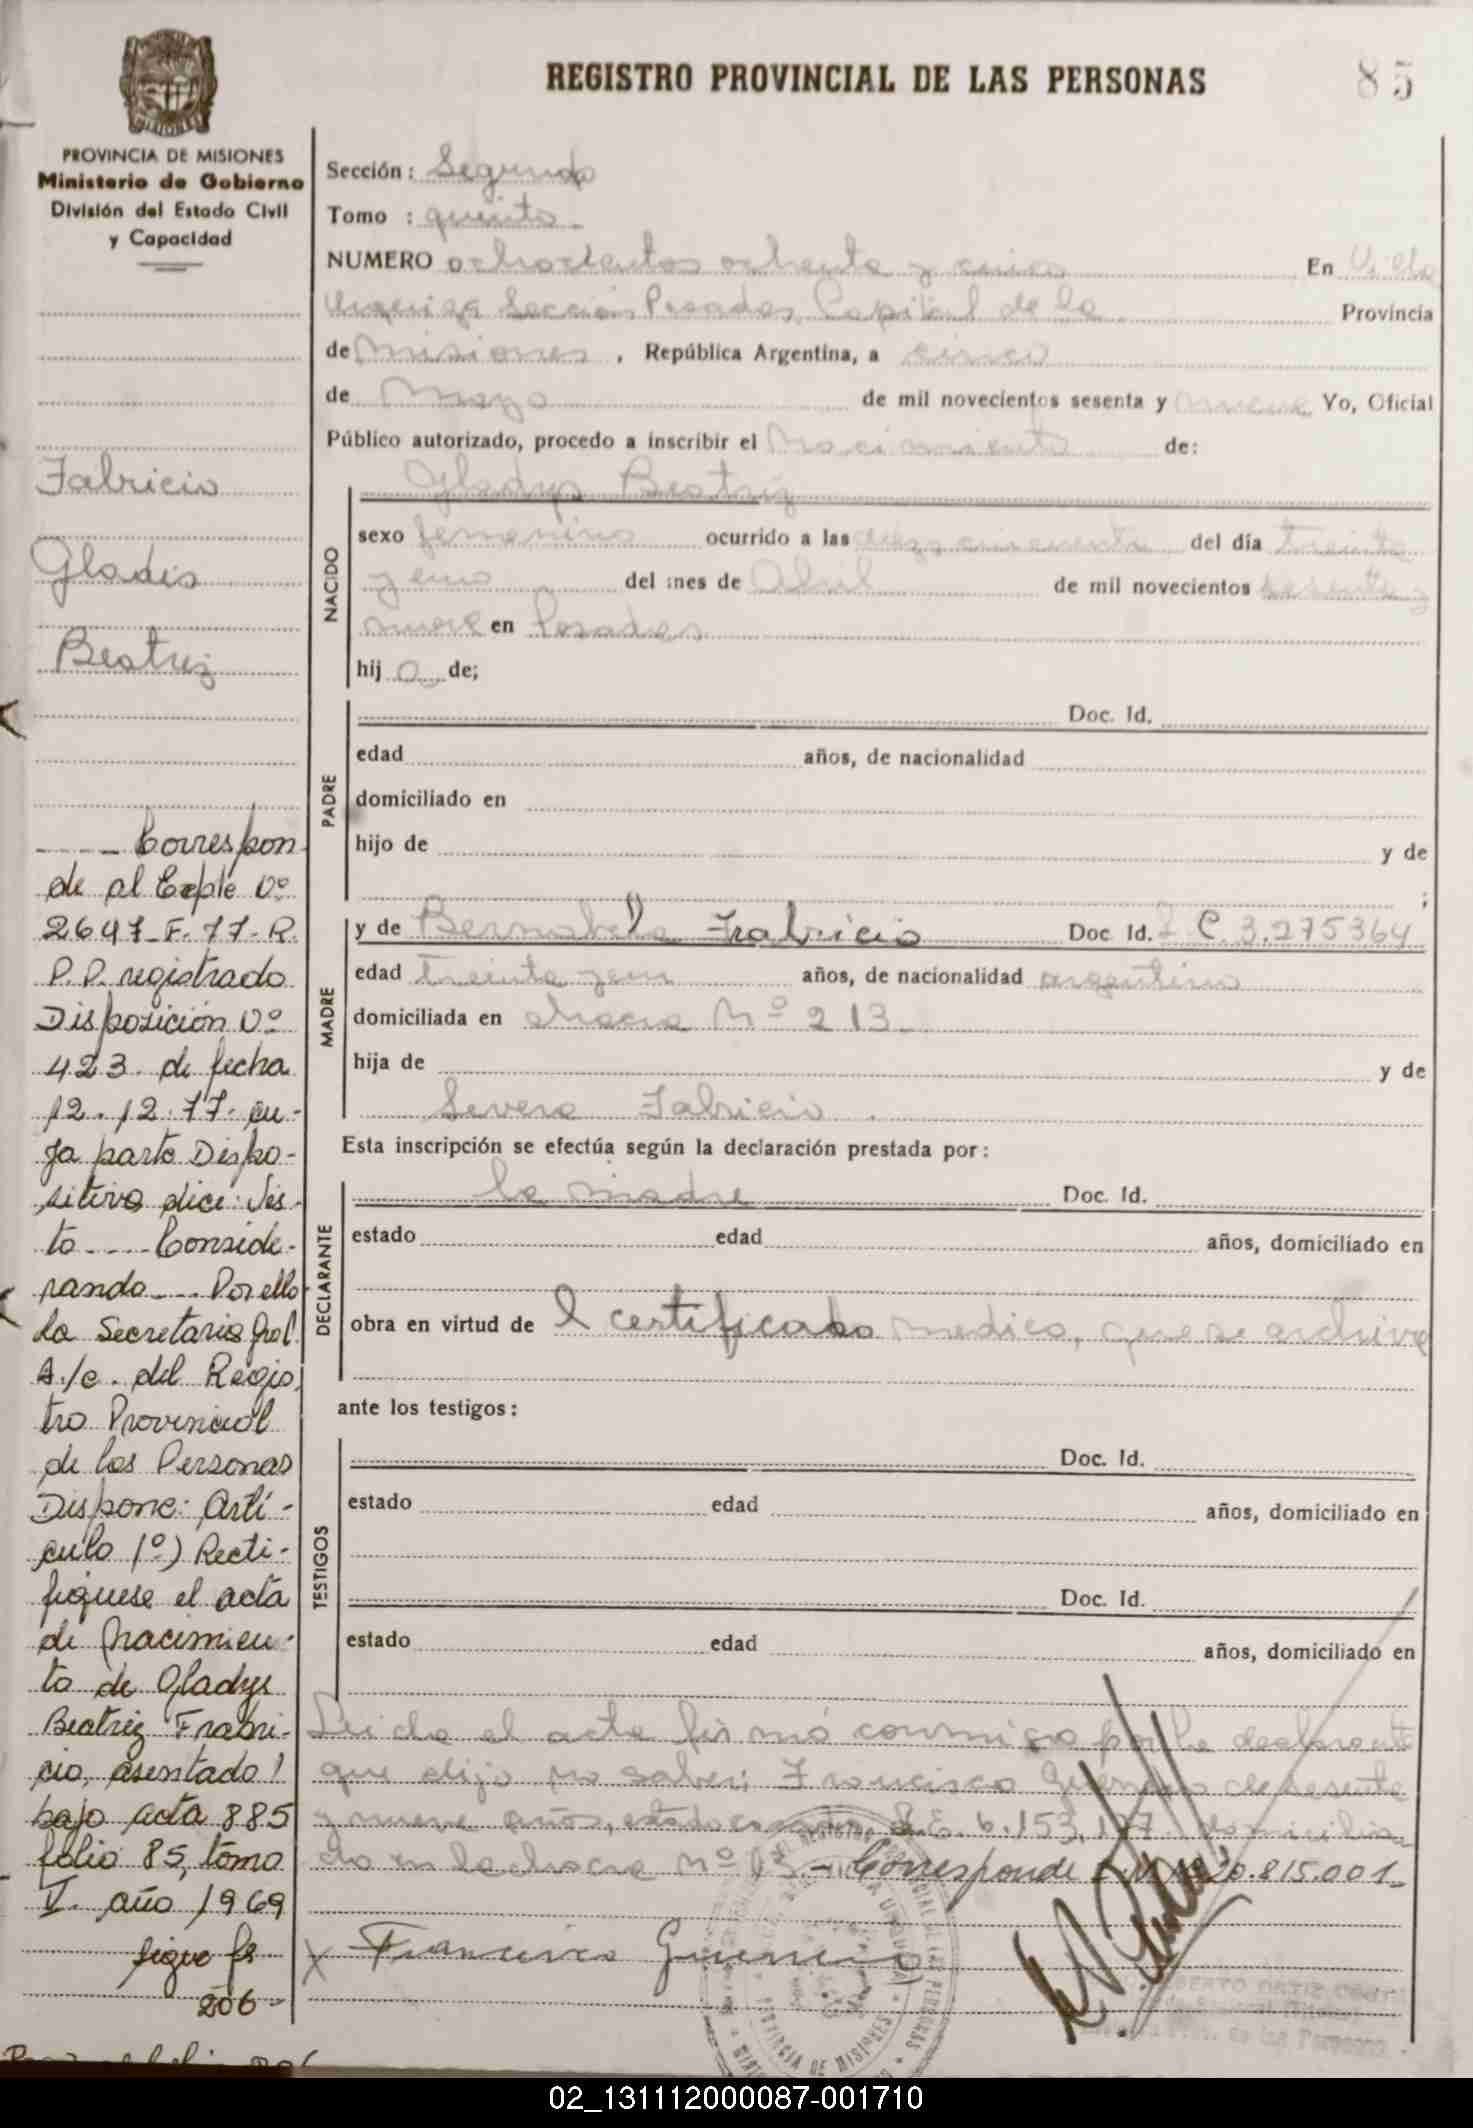 REGISTRO PROVINCIAL DE LAS PERSONAS
85
MISIONES
PROVINCIA DE MISIONES
Ministerio de Gobierno
División del Estado Civil
y Capacidad
Fabricio
Gladis
Beatriz
---- Correspon
de al Expte Nº
2647-F-77-R.
P.P. registrado
Disposición Nº
423 de fecha
12.12.77. cu-
ya parte Dispo-
sitiva dice: Vis-
to ---- Conside-
rando --- Por ello
La Secretaria Gral.
A/c. del Regis
tro Provincial
de las Personas
Dispone: Artí-
culo 1º) Recti-
fíquese el acta
de nacimien-
to de Gladys
Beatriz Frabri-
cio, asentado
bajo acta 885
folio 85, tomo
V. año 1969
sigue fs
206-
Sección: Segunda
Tomo : quinto
NUMERO ochocientos ochenta y cinco En Villa
Urquiza Sección Posadas, Capital de la Provincia
de Misiones, República Argentina, a cinco
de Mayo de mil novecientos sesenta y nueve Yo, Oficial
Público autorizado, procedo a inscribir el Nacimiento de:
NACIDO
Gladys Beatriz
sexo femenino ocurrido a las del día treinta
y uno del mes de Abril de mil novecientos sesenta y
nueve en Posadas
hij a de;
PADRE
Doc. Id.
edad años, de nacionalidad
domiciliado en
hijo de y de
;
MADRE
y de Bernabela Frabricio Doc. Id. L C 3.275364
edad treinta y un años, de nacionalidad argentina
domiciliada en chacra Nº 213
hija de y de
Severa Fabricio.
Esta inscripción se efectúa según la declaración prestada por:
DECLARANTE
la madre Doc. Id.
estado edad años, domiciliado en
obra en virtud de l certificado medico, que se archiva
ante los testigos:
TESTIGOS
Doc. Id.
estado edad años, domiciliado en
Doc. Id.
estado edad años, domiciliado en
Leida el acta firmó conmigo por la declarante
que dijo no saber; Francisco Guerrero de sesenta
y nueve años, estado casado L.E. 6.153.177 domicilia
do en la chacra nº 13.- Corresponde 20.815.001-
X Francisco Guerrero
PROVINCIA DE MISIONES
ROBERTO ORTIZ
de las Personas
02_131112000087-001710